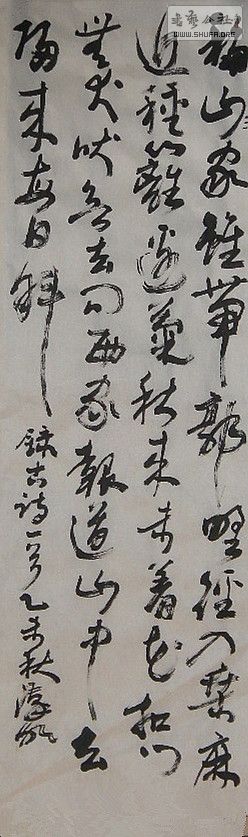 書藝公社
WWW.SHUFA.ORG
移家雖帶郭野徑入桑麻
近種籬邊菊秋來未著花扣門
無犬吠欲去問西家報道山中去
歸來每日斜
錄古詩一首乙未秋